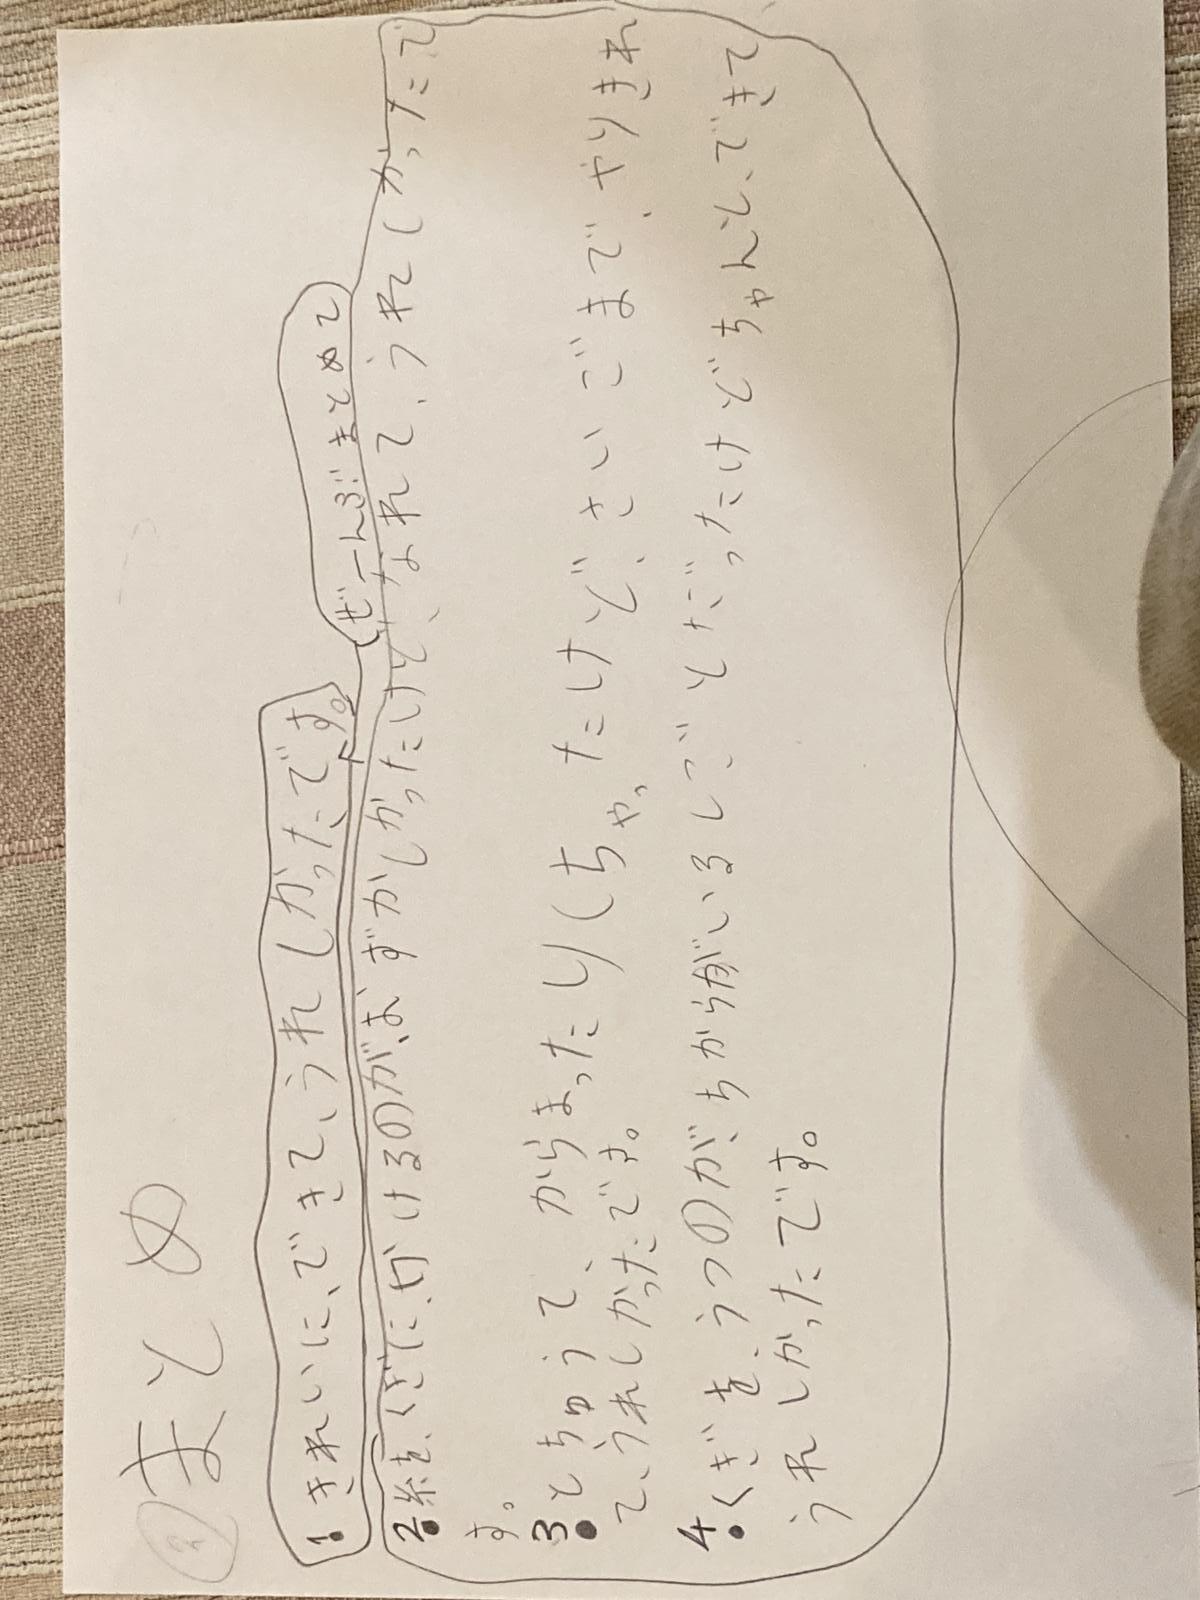 ② まとめ
1. きれいに、できて、うれしかったです。
(ぜーんぶまとめて
2. 糸を、くぎに、かけるのが、むずかしかったけど、なれて、うれしかったで
す。
3. とちゅうて、からまったりしちゃったけど、さいごまで、やりきれ
て、うれしかったです。
4. くぎを、うつのがちからがいるしごとだったけどちゃんと、できて
うれしかったです。